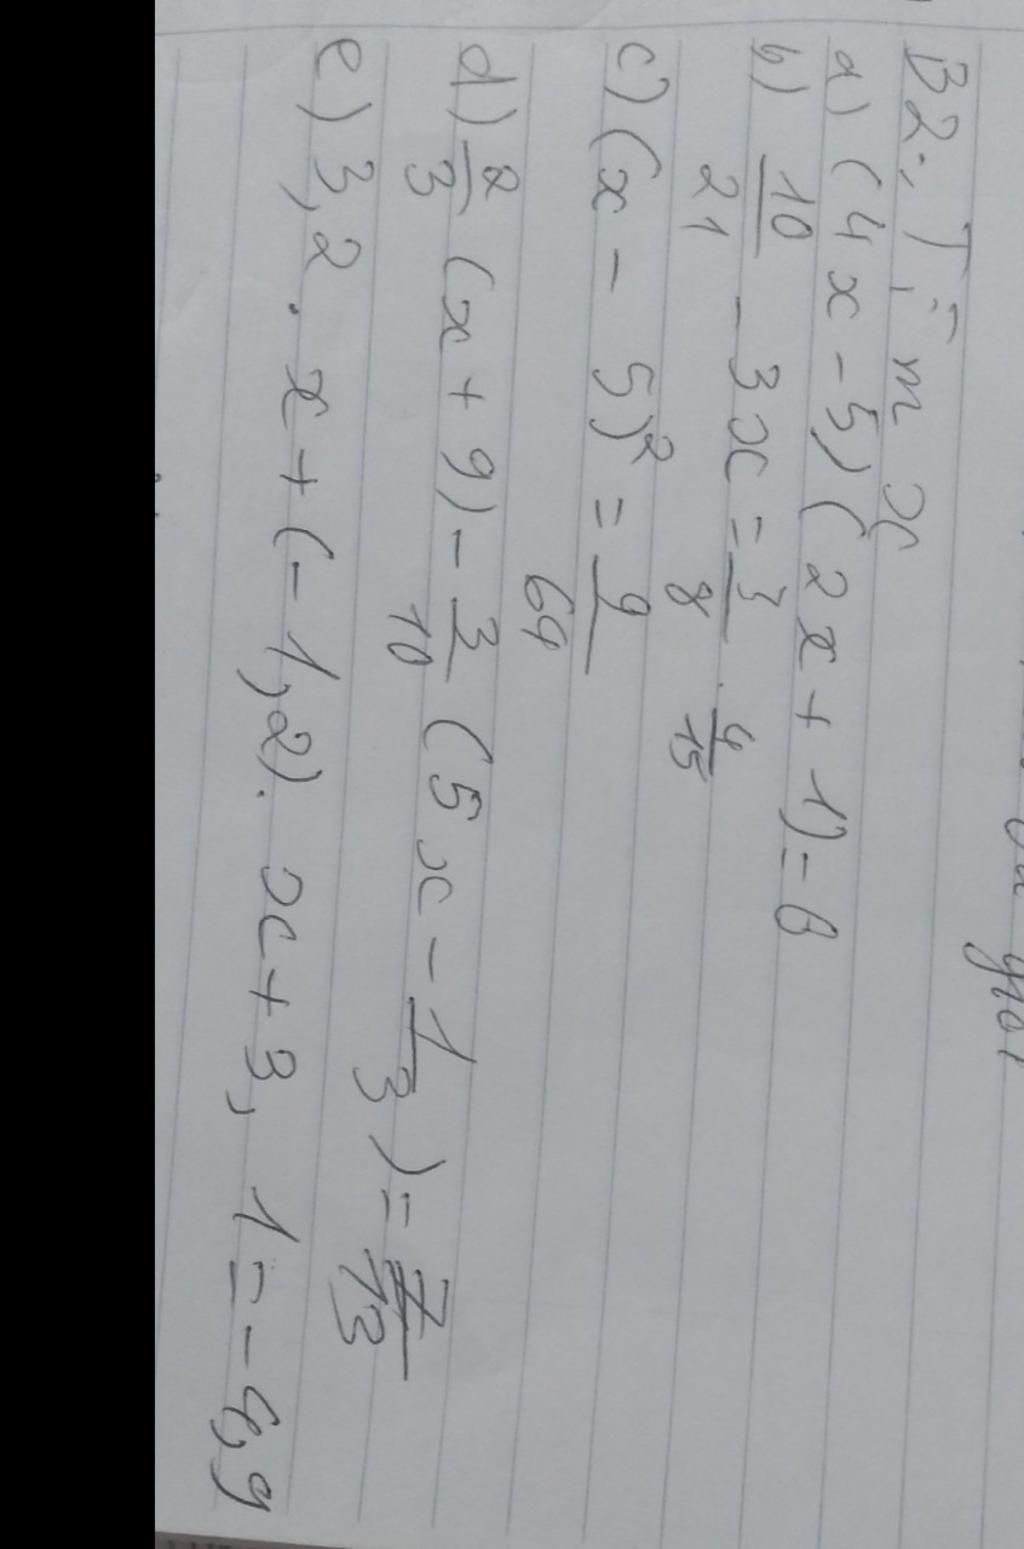 B2: Tìm x
a) (4x - 5)(2x + 1) = 0
b) 10/21 - 3x = 3/8 . 4/15
c) (x - 5)² = 9/64
d) 2/3 (x + 9) - 3/10 (5x - 1/3) = 7/13
e) 3,2 . x + (-1,2). x + 3, 1 = -4,9